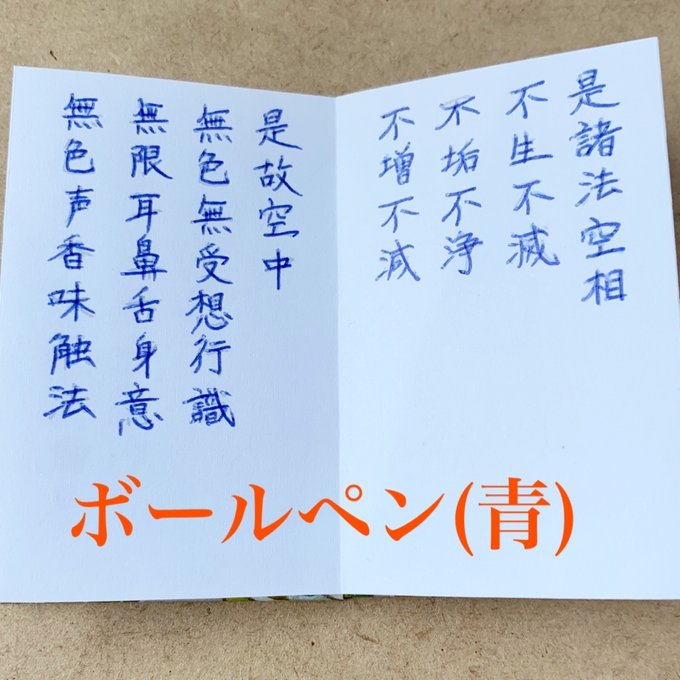 是諸法空相
不生不滅
不垢不浄
不増不減
是故空中
無色無受想行識
無限耳鼻舌身意
無色声香味触法
ボールペン(青)